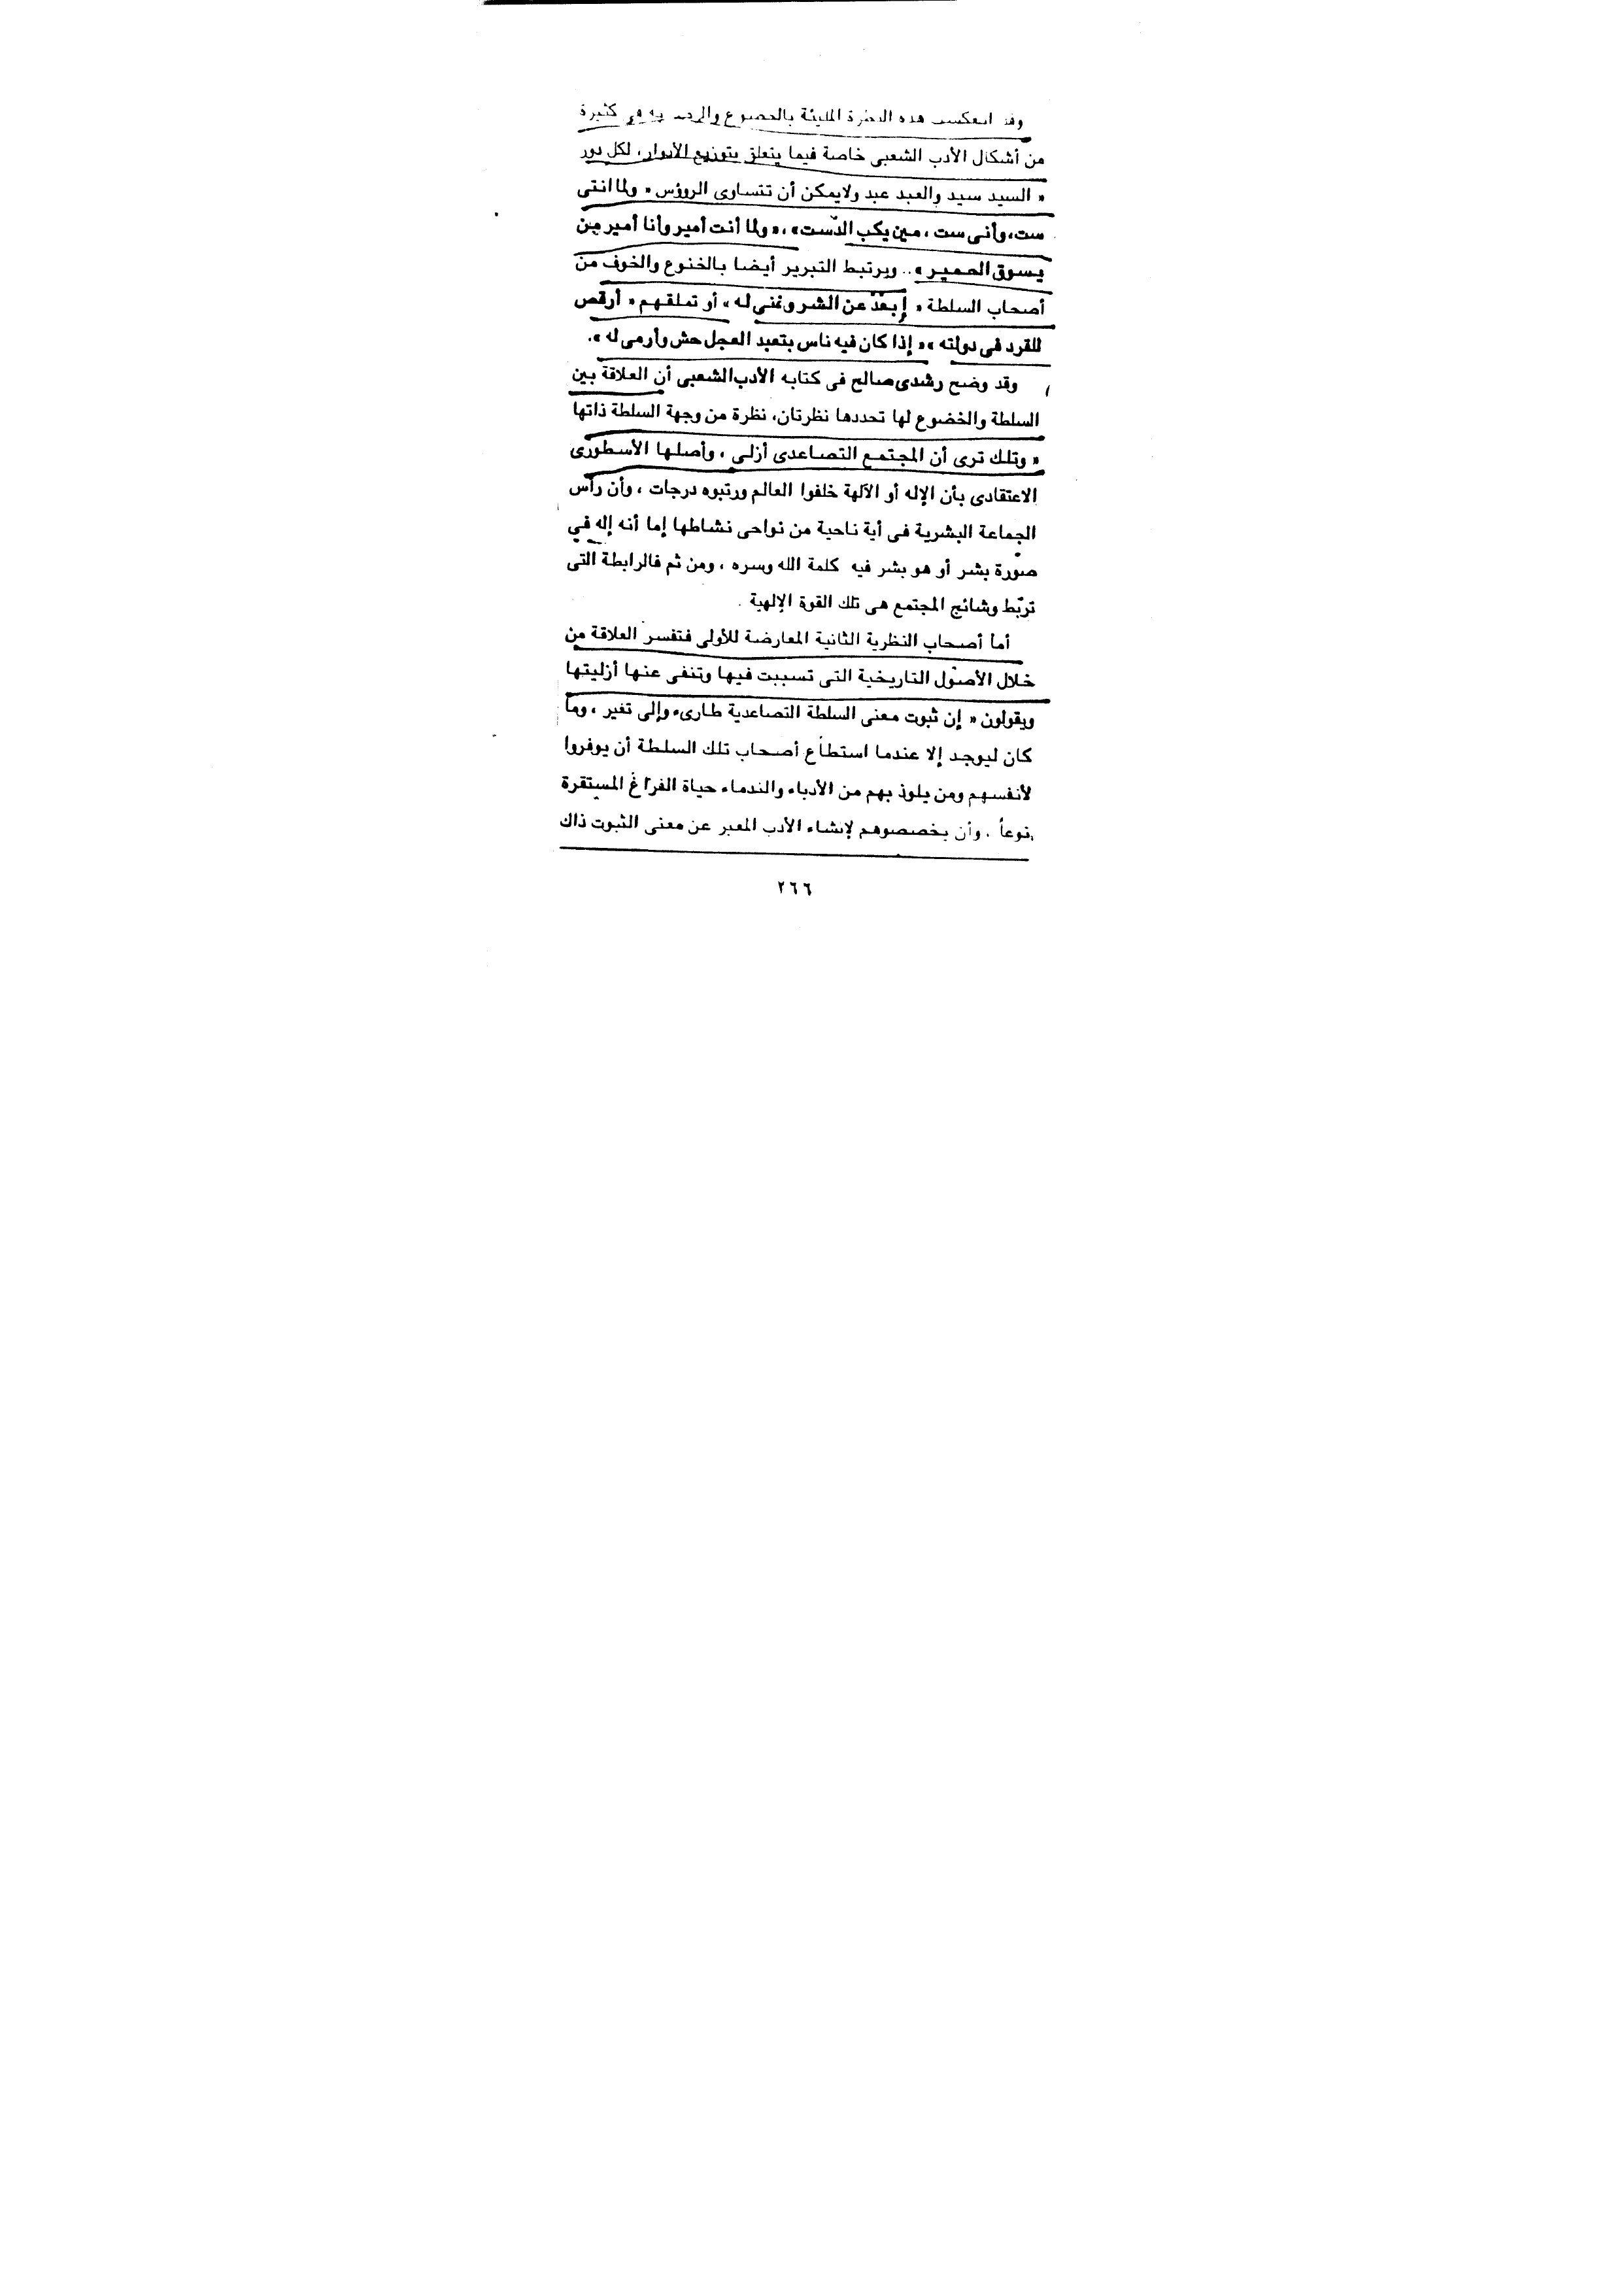 وقد انعكست هذه النظرة المليئة بالخضوع في كثيرة
من أشكال الأدب الشعبى خاصة فيما يتعلق بتوزيع الأدوار، لكل دور
« السيد سيد والعبد عبد ولايمكن أن تتساوى الرووس « ولما انتى
ست، وأنى ست ، مين يكب الدّست» ،« ولما أنت أمير وأنا أمير مين
يسوق الحمير » .. ويرتبط التبرير أيضا بالخنوع والخوف من
أصحاب السلطة « إبعد عن الشر وغنى له » أو تملقهم « أرقص
للقرد فى دولته » « إذا كان فيه ناس بتعبد العجل حش وأرمى له ».
وقد وضح رشدى صالح فى كتابه الأدب الشعبى أن العلاقة بين
السلطة والخضوع لها تحددها نظرتان، نظرة من وجهة السلطة ذاتها
« وتلك ترى أن المجتمع التصاعدى أزلى ، وأصلها الأسطورى
الاعتقادى بأن الإله أو الآلهة خلفوا العالم ورتبوه درجات ، وأن رأس
الجماعة البشرية فى أية ناحية من نواحى نشاطها إما أنه إله في
صورة بشر أو هو بشر فيه كلمة الله وسره ، ومن ثم فالرابطة التى
تربط وشائج المجتمع هى تلك القوة الإلهية .
أما أصحاب النظرية الثانية المعارضة للأولى فتفسر العلاقة من
خلال الأصول التاريخية التى تسببت فيها وتنفى عنها أزليتها
ويقولون « إن ثبوت معنى السلطة التصاعدية طارىء وإلى تغير ، وما
كان ليوجد إلا عندما استطاع أصحاب تلك السلطة أن يوفروا
لأنفسهم ومن يلوذ بهم من الأدباء والندماء حياة الفراغ المستقرة
نوعاً ، وأن يخصصوهم لإنشاء الأدب المعبر عن معنى الثبوت ذاك
٢٦٦